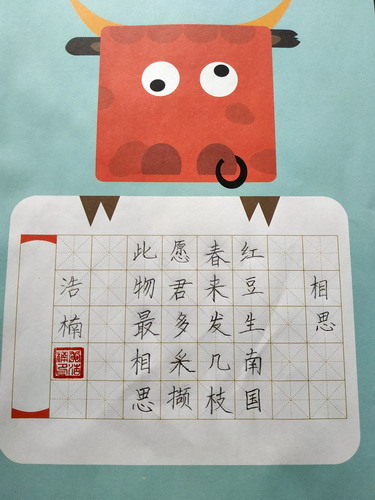 相思
红豆生南国
春来发几枝
愿君多采撷
此物最相思
浩楠